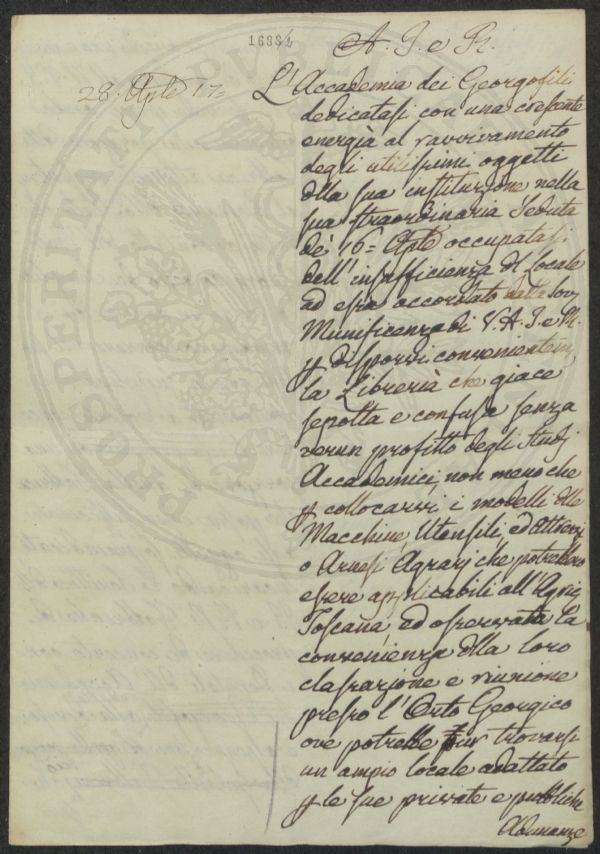 1688/2
A. I. e R.
28. Aple 17=
L'Accademia dei Georgofili
dedicatasi con una crescente
energià al ravvivamento
degli utilissimi oggetti
dlla sua instituzione nella
sua straordinaria Seduta
de' 16= Aple occupatasi
dell'insufficienza dl Locale
ad essa accordato dalla Sov.
Munificenza di V. A. I. e R.
p disporvi convenientem.
la Librerià che giace
sepolta e confusa senza
verun profitto degli Studj
Accademici, non meno che
p collocarvi i modelli dlle
Macchine, Utensili, ed Attrezzi
o Arnesi Agrarj che potrebbero
essere applicabili all'Agric.
Toscana, ed osservata la
convenienza dlla loro
classazione e riunione
presso l'Orto Georgico
ove potrebbe pur trovarsi
un ampio locale adattato
p le sue private e pubbliche
Adunanze
PROSPERITA PUBBLICA